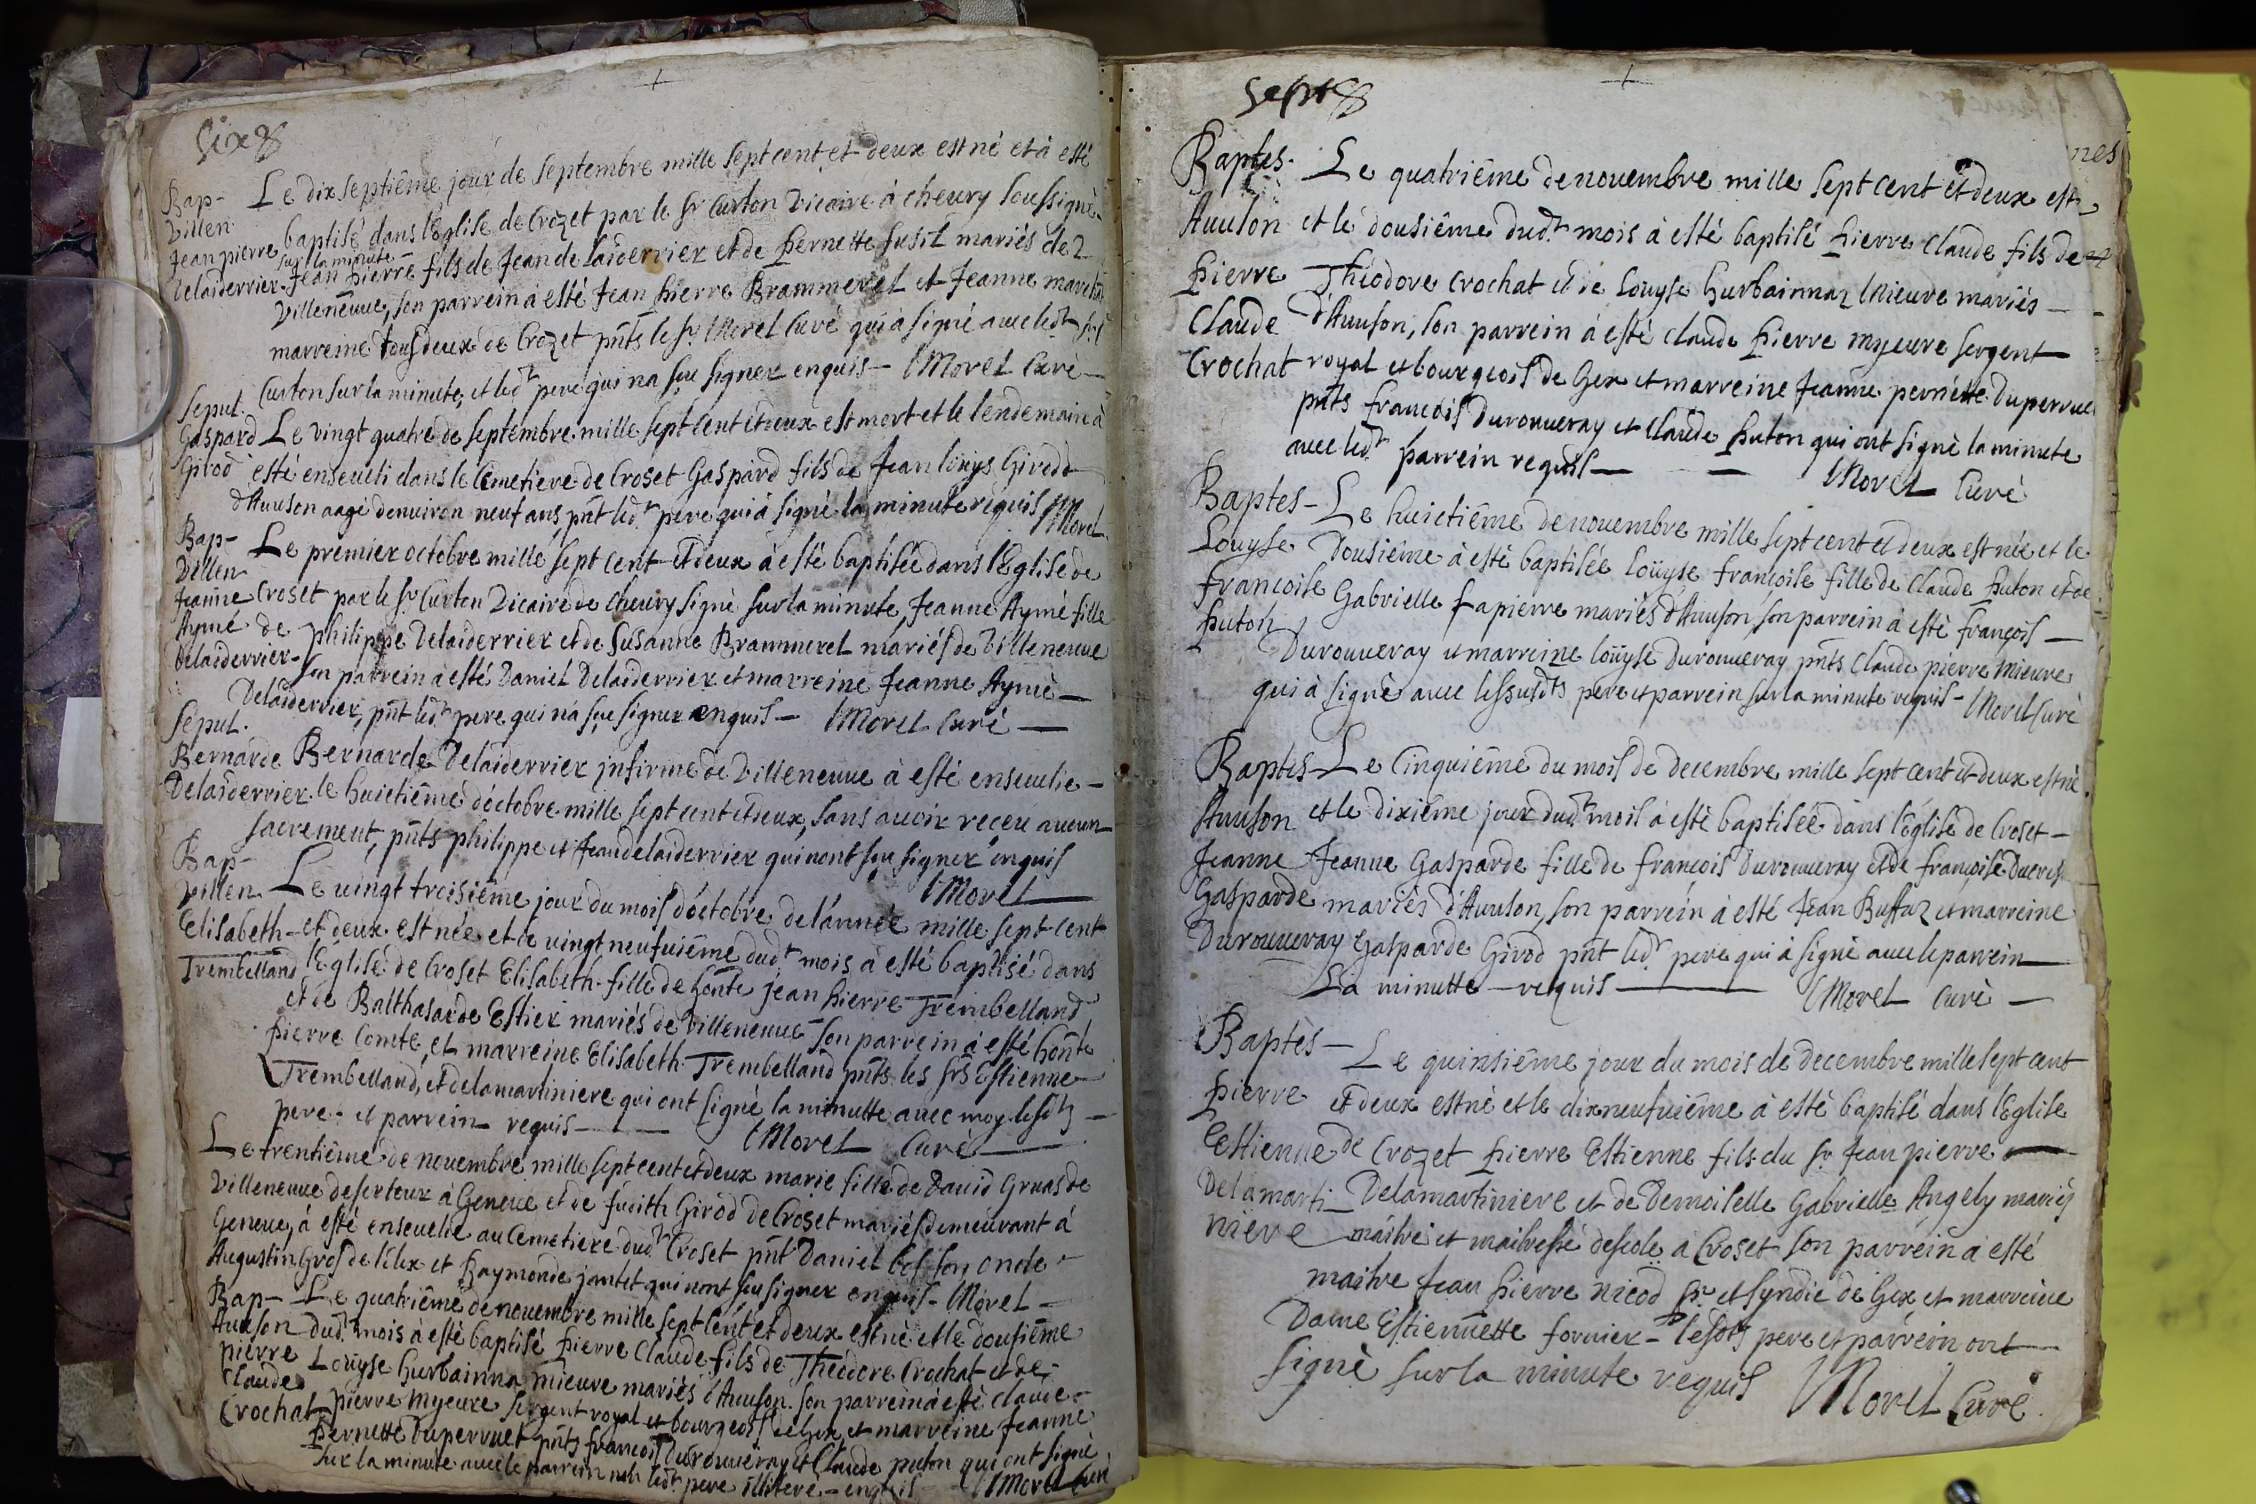 Six
Bap-
Villen
Jean pierre
Delaiderrier
Le dix septiême jour de septembre mille sept cent et deux est né et à esté
baptisé dans l'Eglise de Crozet par le Sr Curton vicaire à cheury soussigné
sur la minute
Jean pierre fils de Jean de Laiderrier et de pernette fusil mariés de
villeneuue, son parrein à esté Jean pierre Brammerel et Jeanne
marreine tous deux de Crozet pnts le Sr Morel Curé qui à signé auec ledt Sr
Curton sur la minute, et ledt pere qui na sçu signer enquis - Morel Curé
Sepul.
Gaspard
Girod
Le vingt quatre de septembre mille sept cent et deux est mort et le lendemain à
esté enseueli dans le Cemetiere de Croset Gaspard fils de Jean louys Girod
d'Auuson aagé denuiron neuf ans pnt ledt pere qui à signé la minute requis Morel
Bap-
Villen
Jeanne
Aymé
Delaiderrier
Le premier octobre mille sept cent et deux à esté baptisée dans l'Eglise de
Croset par le Sr Curton Vicaire de cheury signé sur la minute, Jeanne Aymé fille
de philippe Delaiderrier et de Susanne Brammerel mariés de villeneuue
son parrein à esté Daniel Delaiderrier et marreine Jeanne Aymé
Delaiderrier, pnt ledt pere qui na sçu signer enquis - Morel Curé
Sepul.
Bernarde
Delaiderrier
Bernarde Delaiderrier infirme de villeneuue à esté enseuelie
le huictiême d'octobre mille sept cent et deux, sans auoir receu aucun
sacrement, pnts philippe et Jean delaiderrier qui nont sçu signer enquis
Morel
Bap-
Villen
Elisabeth
Trembelland
Le vingt troisiême jour du mois d'octobre de l'année mille sept cent
et deux est née et le vingt neufuiême dudt mois à esté baptisé dans
l'Eglise de Croset Elisabeth fille de honte jean pierre Trembelland
et de Balthasarde Estier mariés de villeneuue son parrein à esté honte
pierre Comte, et marreine Elisabeth Trembelland pnts les Srs Estienne
Trembelland, et delamartiniere qui ont signé la minutte auec moy lesdts
pere et parrein requis - Morel Curé
Le trentiême de nouembre mille sept cent et deux marie fille de Dauid Gruas de
villeneuue deserteur à Geneue et de judith Girod de Croset mariés demeurant à
Geneue, à esté enseuelie au Cemetiere dudt Croset pnt Daniel bos son oncle
Augustin Gros de lélex et Raymonde jantet qui nont sçu signer enquis - Morel
Bap-
Auuson
pierre
Claude
Crochat
Le quatriême de nouembre mille sept cent et deux est né et le dousiême
dudt mois à esté baptisé pierre Claude fils de Theodore Crochat et de
Loüyse hurbainna mieure mariés d'Auuson son parrein à esté claude
pierre myeure sergent royal et bourgeois de Gex, et marreine Jeanne
pernette Duperruet pnts françois Durouueray et Claude puton qui ont signé
sur la minute auec le parrein non ledt pere illitere - enquis Morel Curé
Sept
Baptes-
Auuson
pierre
Claude
Crochat
Le quatriême de nouembre mille sept cent et deux est né
et le dousiême dudt mois à esté baptisé pierre Claude fils de
Théodore Crochat et de Loüyse hurbainnaz Mieure mariés
d'Auuson, son parrein à esté claude pierre myeure sergent
royal et bourgeois de Gex et marreine Jeanne pernette Duperruet
pnts françois Durouueray et Claude puton qui ont signé la minute
auec ledt parrein requis - Morel Curé
Baptes-
Louyse
françoise
puton
Le huictiême de nouembre mille sept cent et deux est née et le
dousiême à esté baptisée Loüyse françoise fille de claude puton et de
Gabrielle fapierre mariés d'Auuson, son parrein à esté françois
Durouueray et marreine loüyse Durouueray pnts claude pierre Mieure
qui à signé auec lessusdts pere et parrein sur la minute requis - Morel Curé
Baptes-
Auuson
Jeanne
Gasparde
Durouueray
Le cinquiême du mois de decembre mille sept cent et deux est né
et le dixiême jour dudt mois à esté baptisée dans l'église de Croset
Jeanne Gasparde fille de françois Durouueray et de françoise
mariés d'Auuson, son parrein à esté Jean Buffaz et marreine
Gasparde Girod pnt ledt pere qui à signé auec le parrein
La minutte requis - Morel Curé
Baptes-
pierre
Estienne
Delamarti
niere
Le quinsiême jour du mois de decembre mille sept cent
et deux est né et le dixneufuiême à esté baptisé dans l'Eglise
de Crozet pierre Estienne fils du Sr Jean pierre
Delamartiniere et de Demoiselle Gabrielle Angely mariés
maitre et maitresse descole à Croset son parrein à esté
maitre Jean pierre nicod pr et syndic de Gex et marreine
Dame Estiennette fornier - lesdts pere et parrein ont
signé sur la minute requis Morel Curé